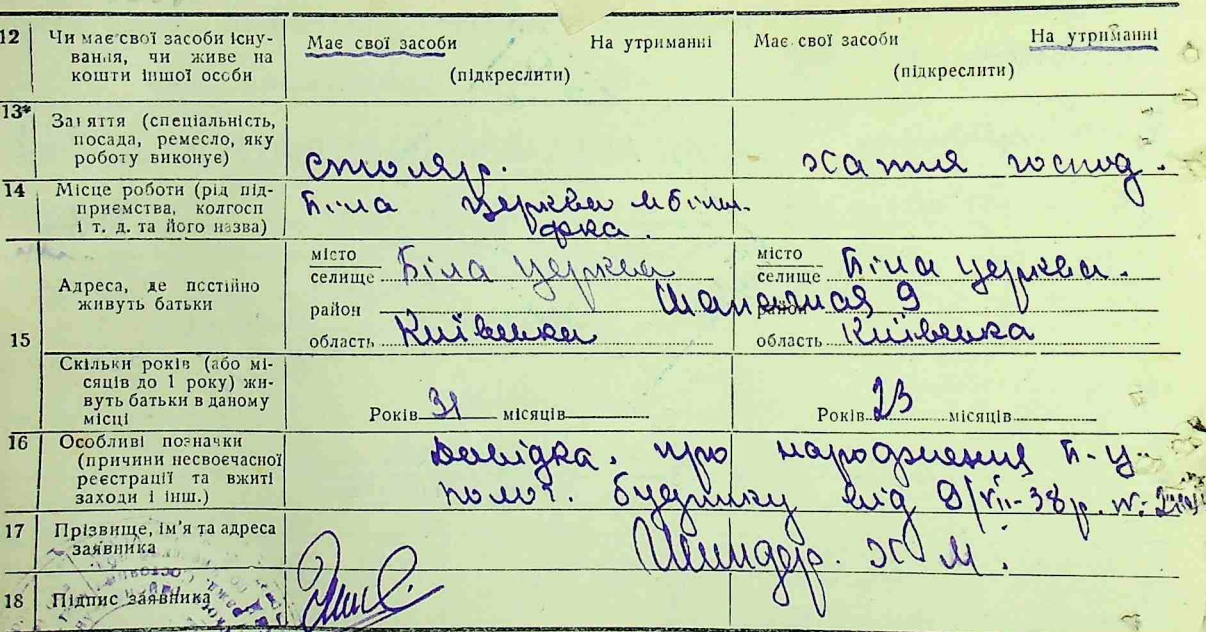 12 Чи має свої засоби існу-
вання, чи живе на
кошти іншої особи
Має свої засоби На утриманні
(підкреслити)
Має свої засоби На утриманні
(підкреслити)
13* Заняття (спеціальність,
посада, ремесло, яку
роботу виконує)
столяр.
хатня господ.
14 Місце роботи (рід під-
приємства, колгосп
і т. д. та його назва)
Біла церква
ф-ка.
15 Адреса, де постійно
живуть батьки
місто
селище Біла церква
район
область Київська
місто
селище Біла церква.
9
район
область Київська
Скільки років (або мі-
сяців до 1 року) жи-
вуть батьки в даному
місці
Років 31 місяців
Років 23 місяців
16 Особливі позначки
(причини несвоєчасної
реєстрації та вжиті
заходи і інш.)
Довідка. про народження Б-Ц.
полог. будинку від 9/VII-38р. N-
17 Прізвище, ім'я та адреса
заявника
Шиндер. Х М.
18 Підпис заявника